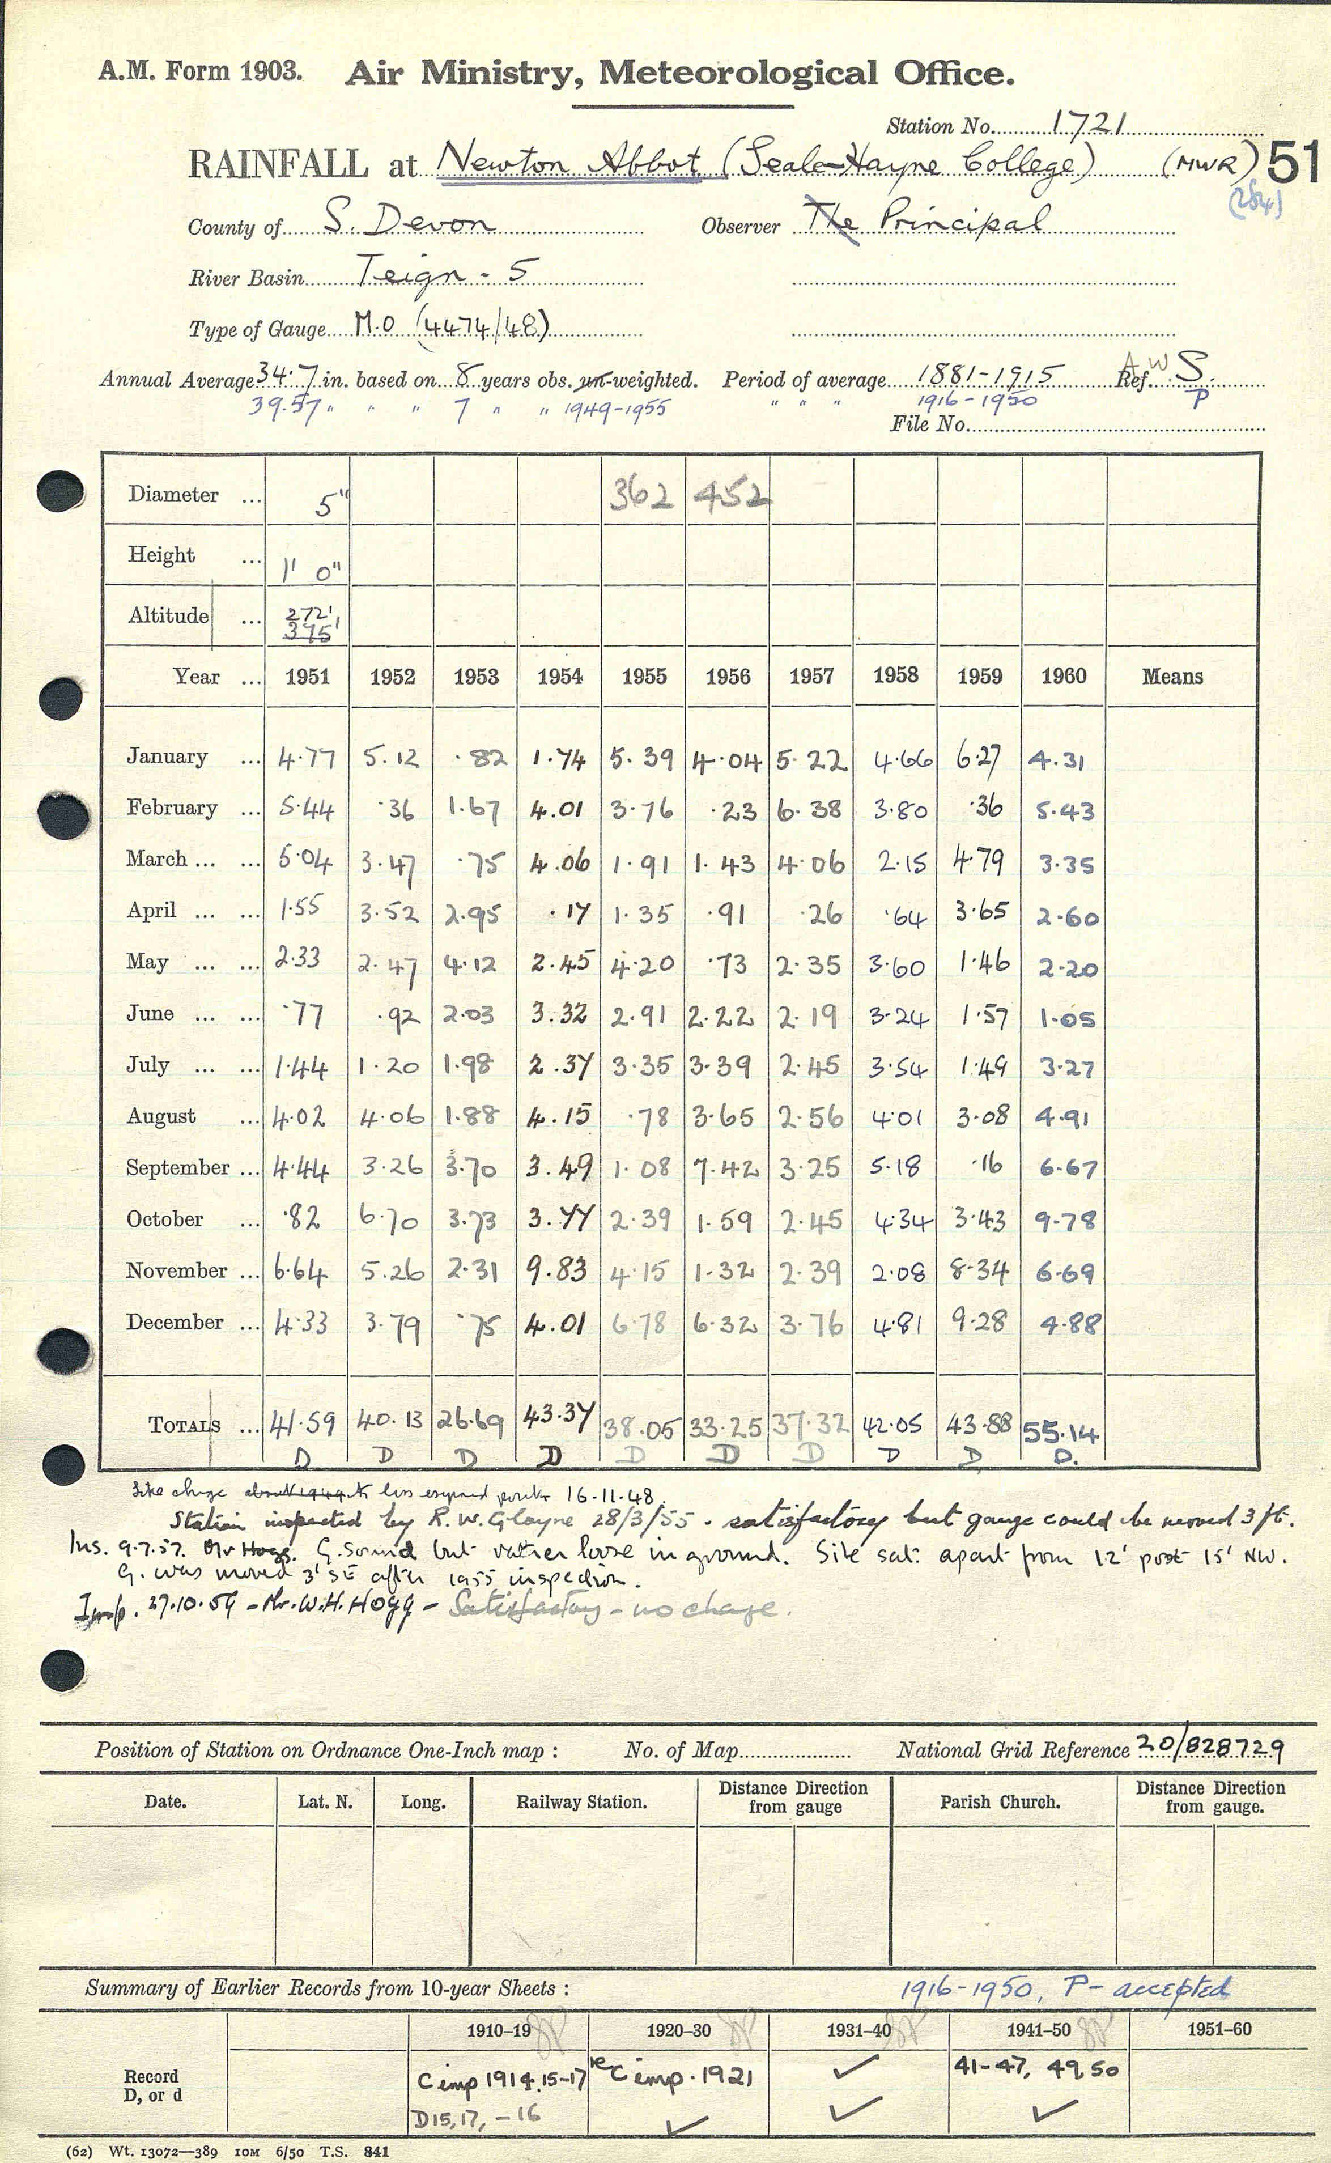 A.M. Form 1903. Air Ministry, Meteorological Office.
Station No. 1721
RAINFALL at Newton Abbot (Seale-Hayne College) (MWR) 51
(284)
County of S. Devon Observer The Principal
River Basin Teign - 5
Type of Gauge M.O (4474/48)
Annual Average 34.7 in. based on 8 years obs. un-weighted. Period of average 1881-1915 Ref. AW S.
39.57 " " " 7 " " 1949-1955 " " " 1916-1950 P
File No.
Diameter ... 5" 362 452
Height ... 1' 0"
Altitude ... 272'
375'
Year ... 1951 1952 1953 1954 1955 1956 1957 1958 1959 1960 Means
January ... 4.77 5.12 .82 1.74 5.39 4.04 5.22 4.66 6.27 4.31
February ... 5.44 .36 1.67 4.01 3.76 .23 6.38 3.80 .36 5.43
March ... ... 5.04 3.47 .75 4.06 1.91 1.43 4.06 2.15 4.79 3.35
April ... ... 1.55 3.52 2.95 .17 1.35 .91 .26 .64 3.65 2.60
May ... ... 2.33 2.47 4.12 2.45 4.20 .73 2.35 3.60 1.46 2.20
June ... ... .77 .92 2.03 3.32 2.91 2.22 2.19 3.24 1.57 1.05
July ... ... 1.44 1.20 1.98 2.37 3.35 3.39 2.45 3.54 1.49 3.27
August ... 4.02 4.06 1.88 4.15 .78 3.65 2.56 4.01 3.08 4.91
September ... 4.44 3.26 3.70 3.49 1.08 7.42 3.25 5.18 .16 6.67
October ... .82 6.70 3.73 3.77 2.39 1.59 2.45 4.34 3.43 9.78
November ... 6.64 5.26 2.31 9.83 4.15 1.32 2.39 2.08 8.34 6.69
December ... 4.33 3.79 .75 4.01 6.78 6.32 3.76 4.81 9.28 4.88
TOTALS ... 41.59 40.13 26.69 43.37 38.05 33.25 37.32 42.05 43.88 55.14
D D D D D D D D D D.
Site change about 1949 to less exposed position 16-11-48.
Station inspected by R.W. Gloyne 28/3/55 - satisfactory but gauge could be moved 3 ft.
Ins. 9.7.57. Mr Hogg. G. Sound but rather loose in ground. Site sat: apart from 12' post 15' NW.
G. was moved 3' SE after 1955 inspection.
Insp. 27.10.59 - Mr. W.H. Hogg - Satisfactory - no change.
Position of Station on Ordnance One-Inch map : No. of Map National Grid Reference 20/828729
Date. Lat. N. Long. Railway Station. Distance Direction from gauge Parish Church. Distance Direction from gauge.
Summary of Earlier Records from 10-year Sheets : 1916-1950, P - accepted
1910-19 1920-30 1931-40 1941-50 1951-60
Record C imp 1914, 15-17 C imp. 1921 ✓ 41-47, 49, 50
D, or d D15, 17, -16 ✓ ✓ ✓
(62) Wt. 13072—389 10M 6/50 T.S. 841